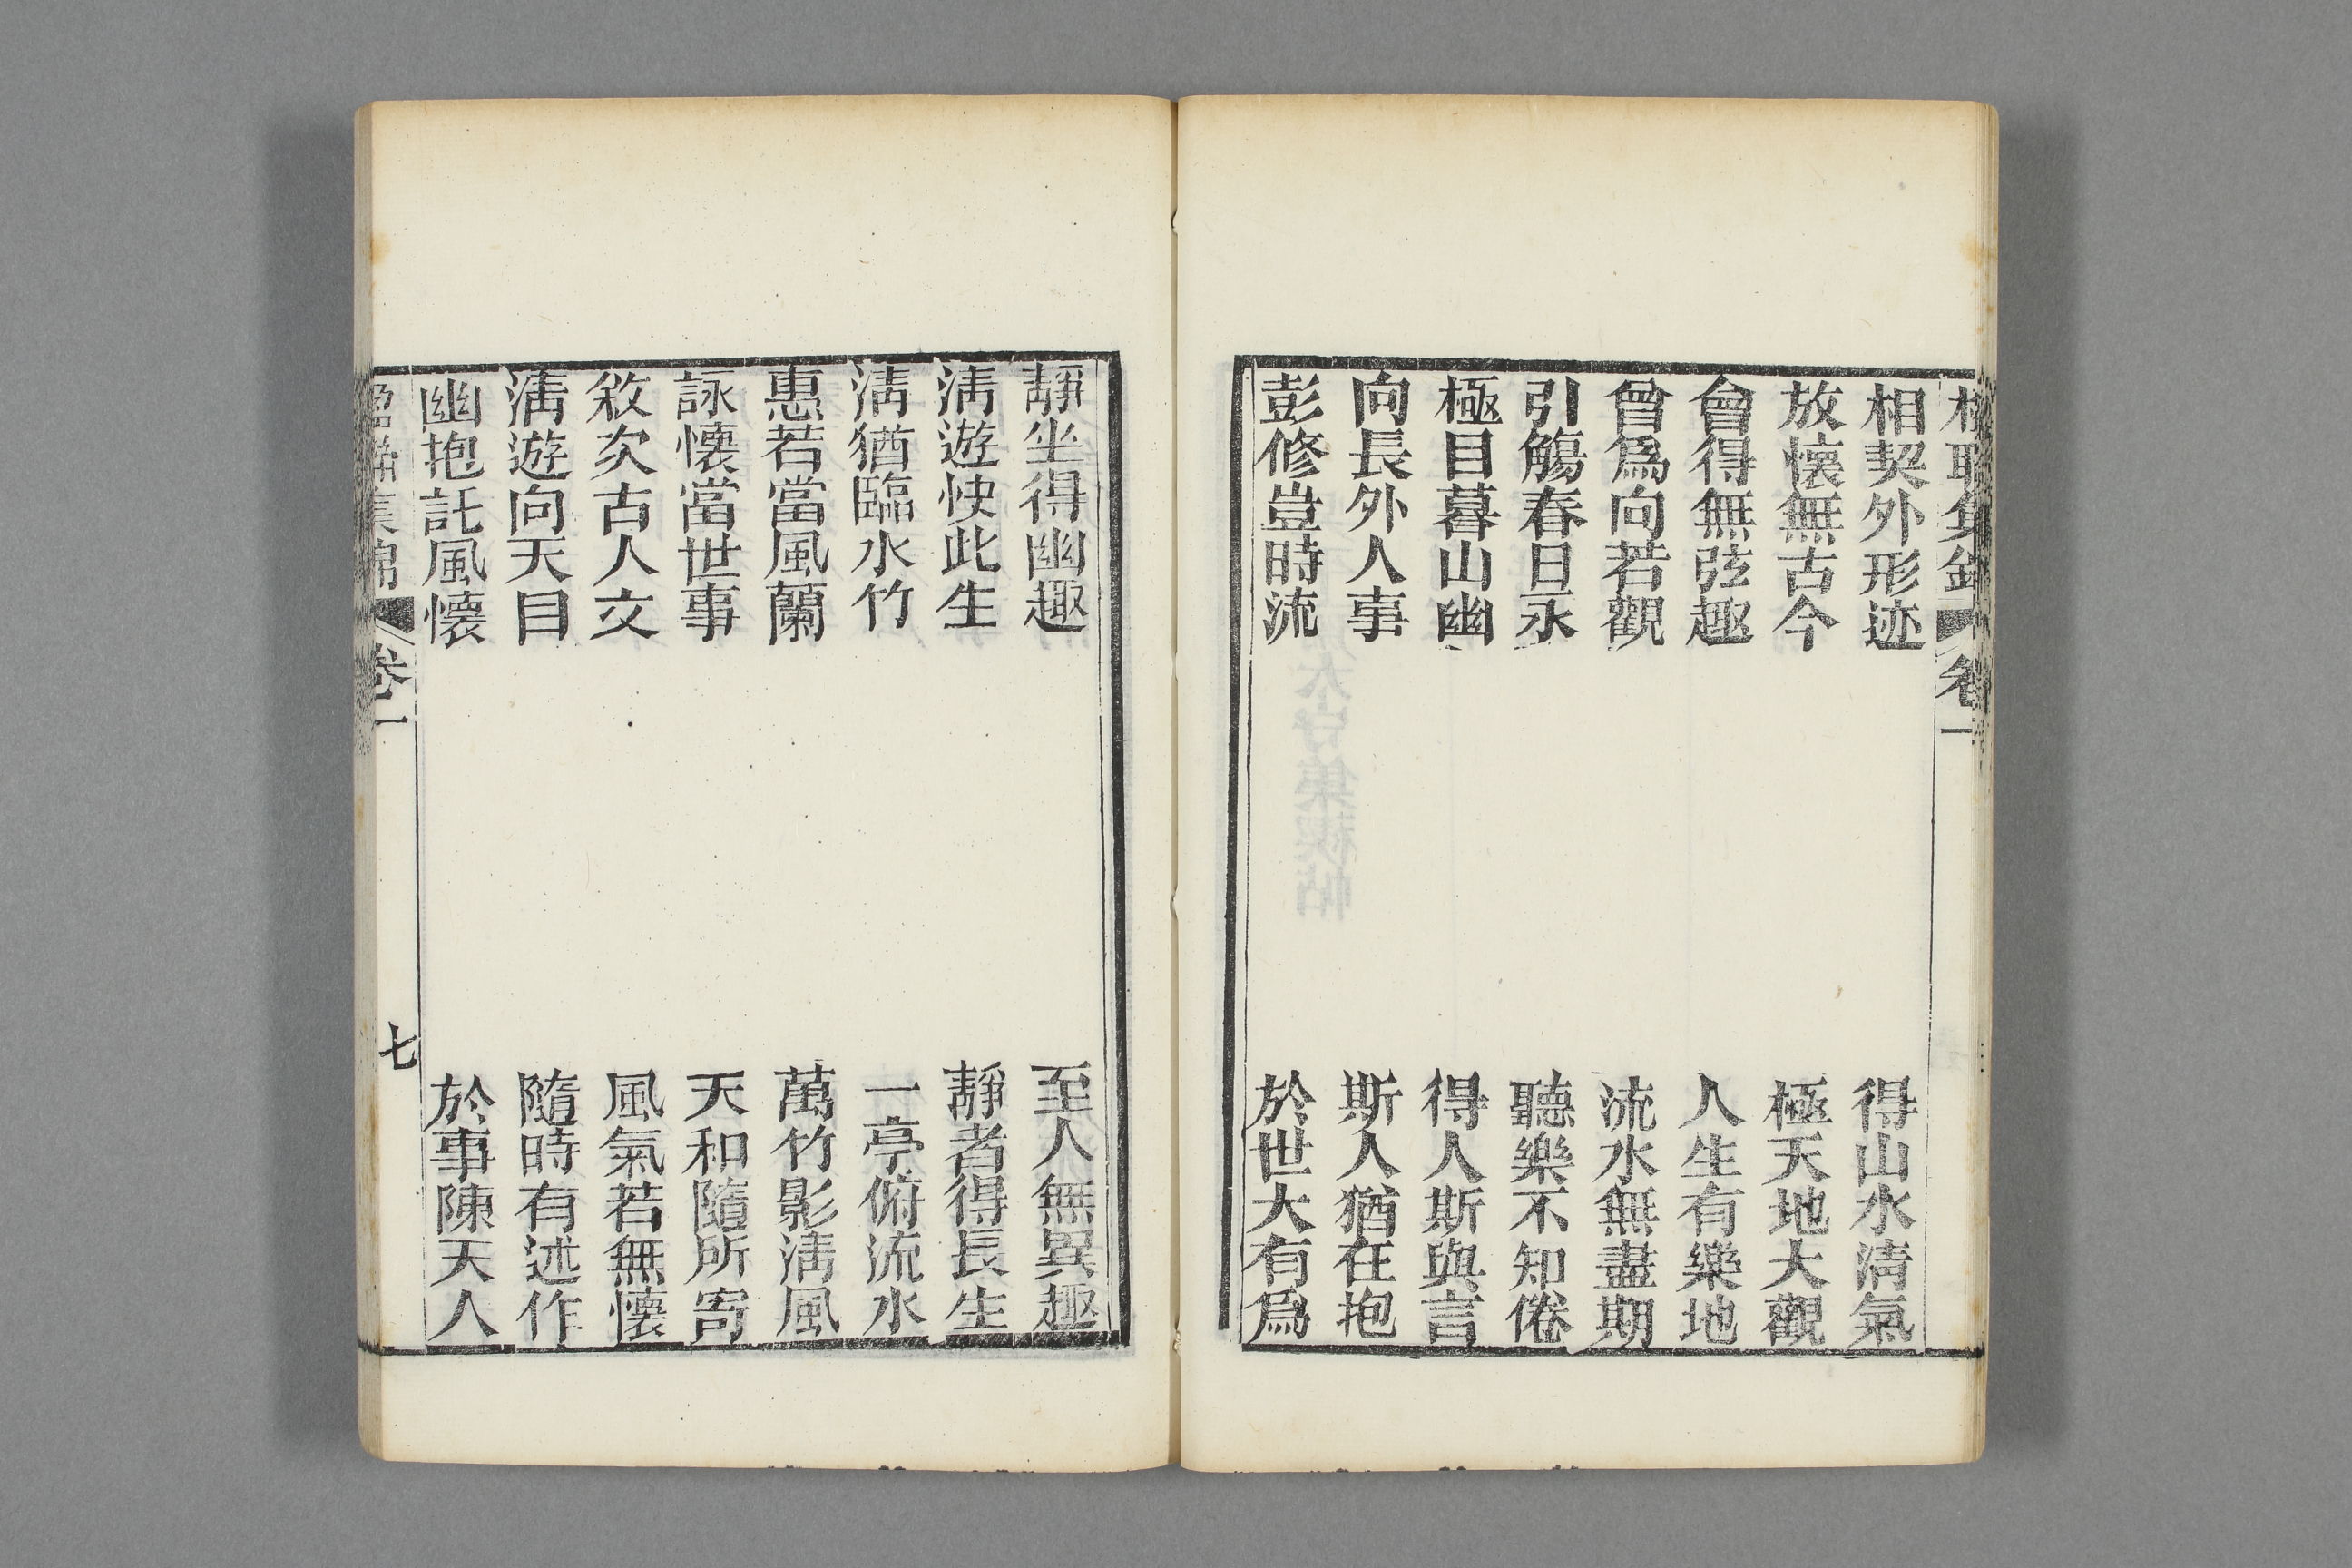 相契外形迹　得山水清氣
放懷無古今　極天地大觀
會得無弦趣　人生有樂地
曾爲向若觀　流水無盡期
引觴春日永　聽樂不知倦
極目暮山幽　得人斯與言
向長外人事　斯人猶在抱
彭修豈時流　於世大有爲
靜坐得幽趣　至人無異趣
清遊快此生　靜者得長生
清猶臨水竹　一亭俯流水
惠若當風蘭　萬竹影清風
詠懷當世事　天和隨所寄
敘次古人文　風氣若無懷
清遊向天目　隨時有述作
幽抱託風懷　於事陳天人
卷一
七